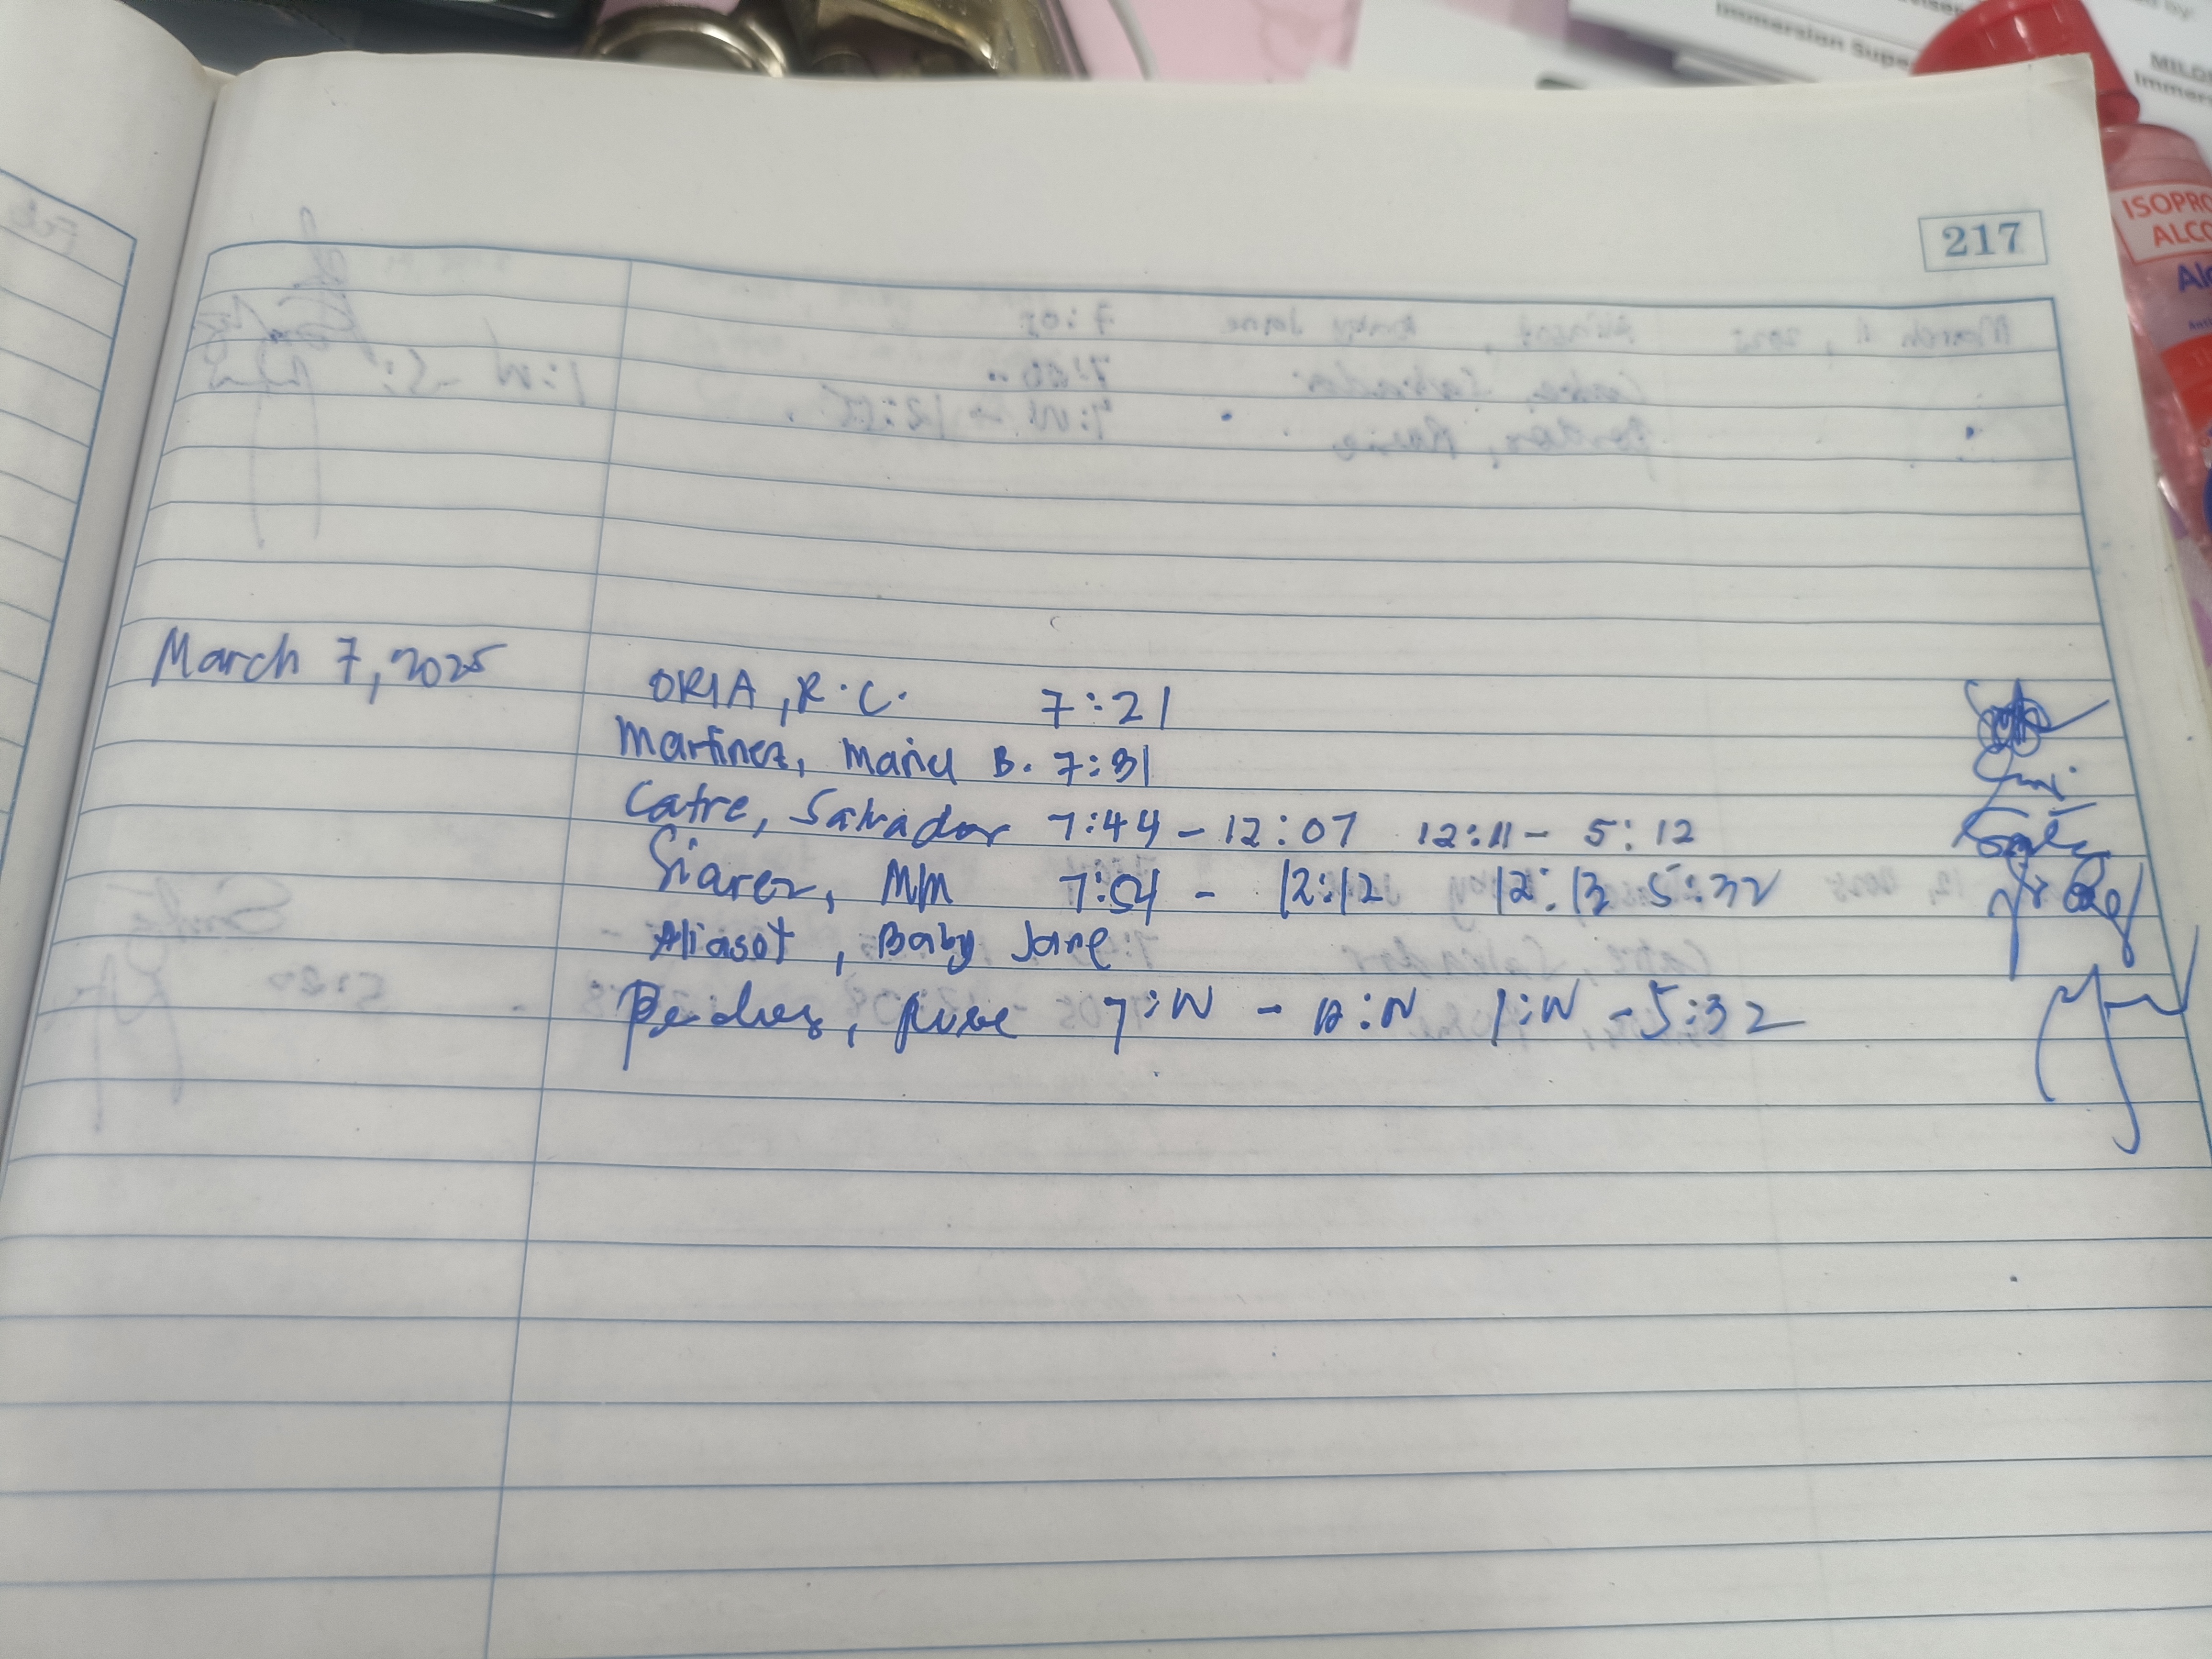 Immersion Supe
MILD
Immer
ISOPRO
ALCO
217
March 7, 2025
ORIA, R.C. 7:21
Martinez, Mariel B. 7:31
Catre, Salvador 7:44 - 12:07 12:11 - 5:12
Siarez, MM 7:54 - 12:12 12:13 5:32
Aliasot, Baby Jane
7:00 - 12:00 1:00 - 5:32